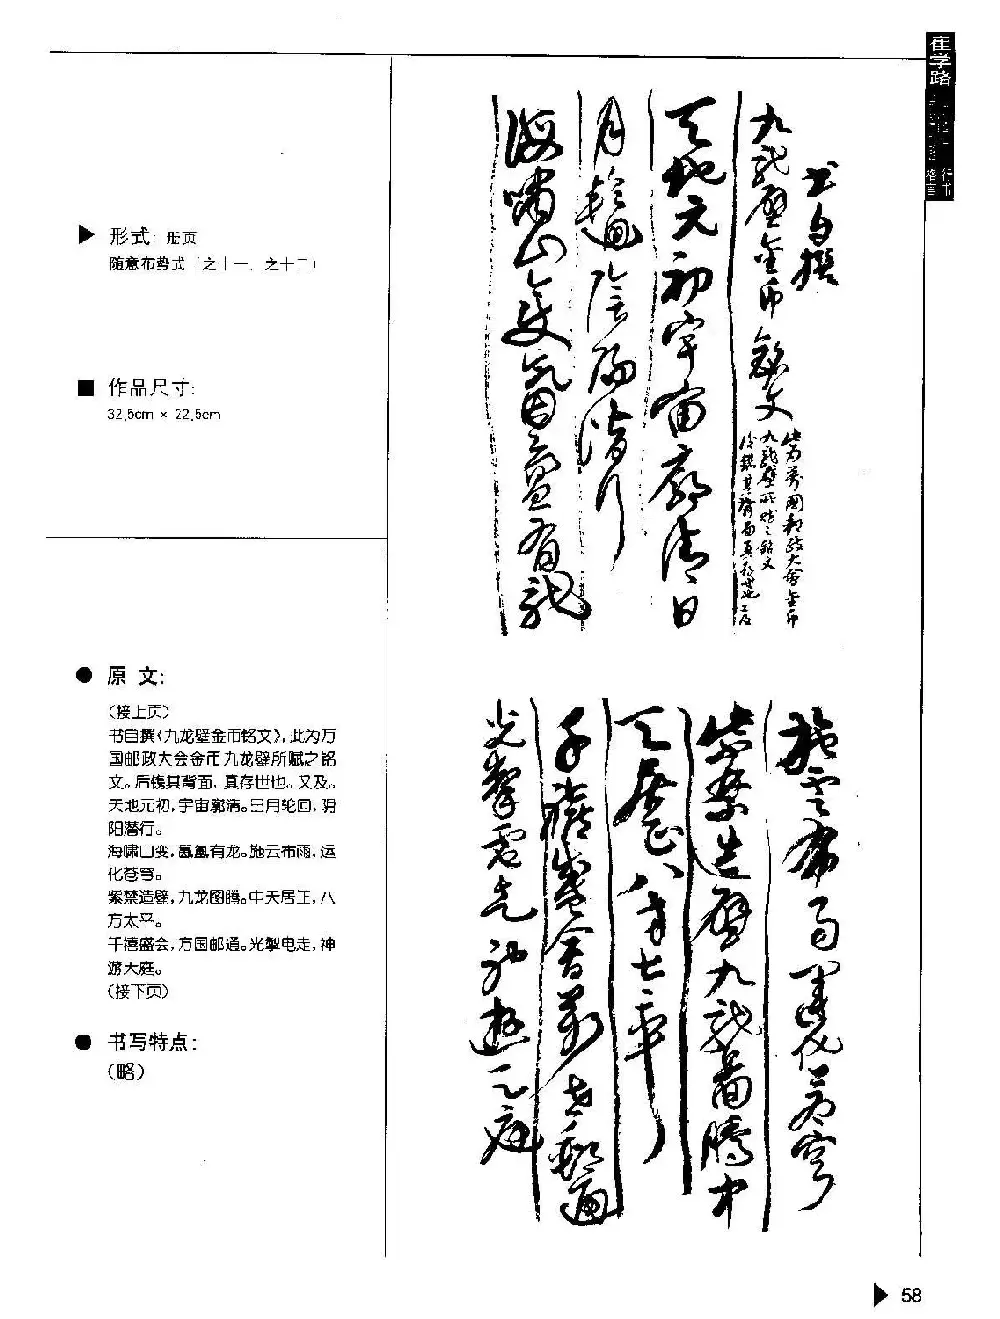 崔学路
行书
格言
▶ 形式: 册页
随意布势式(之十一、之十二)
■ 作品尺寸:
32.5cm × 22.5cm
● 原 文:
(接上页)
书自撰《九龙壁金币铭文》,此为万
国邮政大会金币九龙壁所赋之铭
文。后镌其背面、真存世也。又及。
天地元初,宇宙廓清。日月轮回,阴
阳潜行。
海啸山变,氤氲有龙。施云布雨,运
化苍穹。
紫禁造壁,九龙图腾。中天居正,八
方太平。
千禧盛会,万国邮通。光掣电走,神
游天庭。
(接下页)
● 书写特点:
(略)
书自撰
九龙壁金币铭文
此为万国邮政大会金币
九龙壁所赋之铭文
后镌其背面真存世也又及
天地元初宇宙廓清日
月轮回阴阳潜行
海啸山变氤氲有龙
施云布雨运化苍穹
紫禁造壁九龙图腾中
天居正八方太平
千禧盛会万国邮通
光掣电走神游天庭
▶ 58